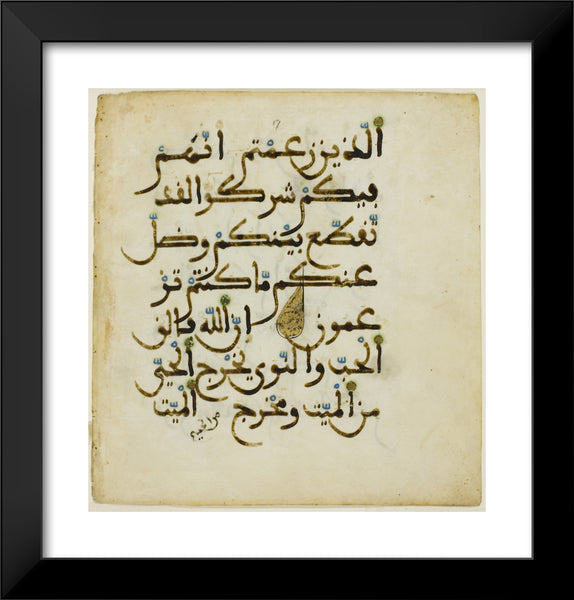 الذين زعمتم انهم
فيكم شركوا لقد
تقطع بينكم وضل
عنكم ما كنتم تز
عمون ان الله فالق
الحب والنوى يخرج الحي
من الميت ومخرج الميت
من الحي